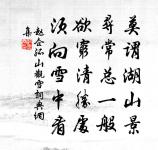 莫謂湖山景
尋常總一般
欲窮清勝處
須向雪中看
趙企孤山觀雪詞典網
集